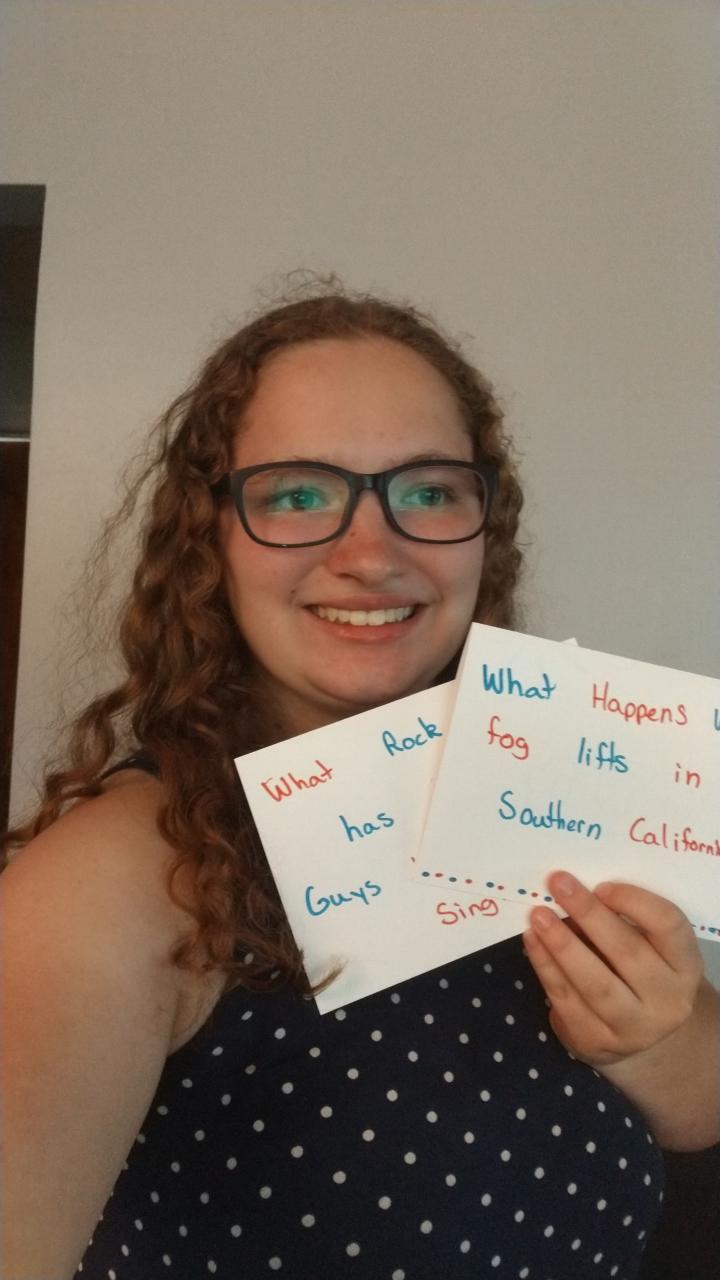 What Rock
has
Guys
Sing
What Happens
fog lifts in
Southern